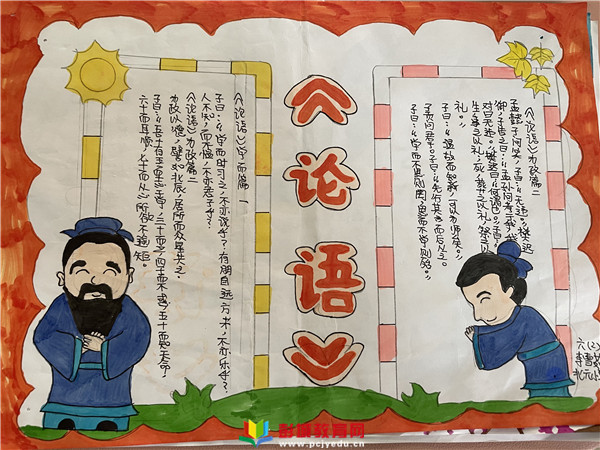 《论语》
《论语》为政篇二
孟懿子问孝,子曰:“无违。”樊迟
御,子告之曰:“孟孙问孝于我,我
对曰无违。”樊迟曰:“何谓也?”子曰:
生,事之以礼;死,葬之以礼,祭之以
礼。”
子曰:“温故而知新,可以为师矣。”
子贡问君子。子曰:“先行其言而后从之。”
子曰:“学而不思则罔,思而不学则殆。”
《论语》学而篇 一
子曰:“学而时习之,不亦说乎?有朋自远方来,不亦乐乎?
人不知,而不愠,不亦君子乎?”
《论语》为政篇二
为政以德,譬如北辰,居所而众星共之。
子曰:“吾十有五而志于学,三十而立,四十而不惑,五十而知天命,
六十而耳顺,七十而从心所欲不逾矩。
六(2)
彭城教育网
www.pcjyedu.cn